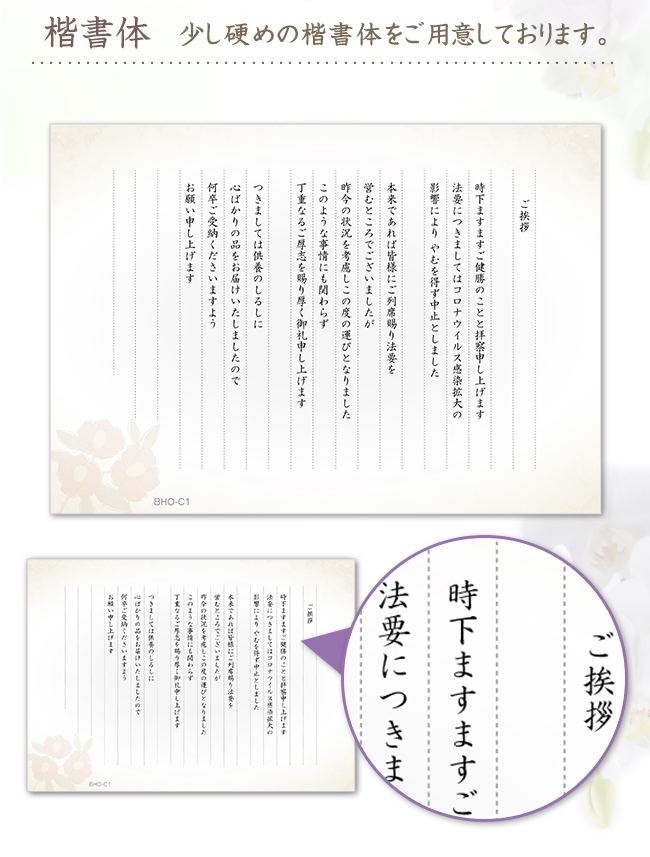 楷書体 少し硬めの楷書体をご用意しております。
ご挨拶
時下ますますご健勝のことと拝察申し上げます
法要につきましてはコロナウイルス感染拡大の
影響により やむを得ず中止としました
本来であれば皆様にご列席賜り法要を
営むところでございましたが
昨今の状況を考慮しこの度の運びとなりました
このような事情にも関わらず
丁重なるご厚志を賜り厚く御礼申し上げます
つきましては供養のしるしに
心ばかりの品をお届けいたしましたので
何卒ご受納くださいますよう
お願い申し上げます
BHO-C1
ご挨拶
時下ますますご健勝のことと拝察申し上げます
法要につきましてはコロナウイルス感染拡大の
影響により やむを得ず中止としました
本来であれば皆様にご列席賜り法要を
営むところでございましたが
昨今の状況を考慮しこの度の運びとなりました
このような事情にも関わらず
丁重なるご厚志を賜り厚く御礼申し上げます
つきましては供養のしるしに
心ばかりの品をお届けいたしましたので
何卒ご受納くださいますよう
お願い申し上げます
BHO-C1
ご挨拶
時下ますますご
法要につきま